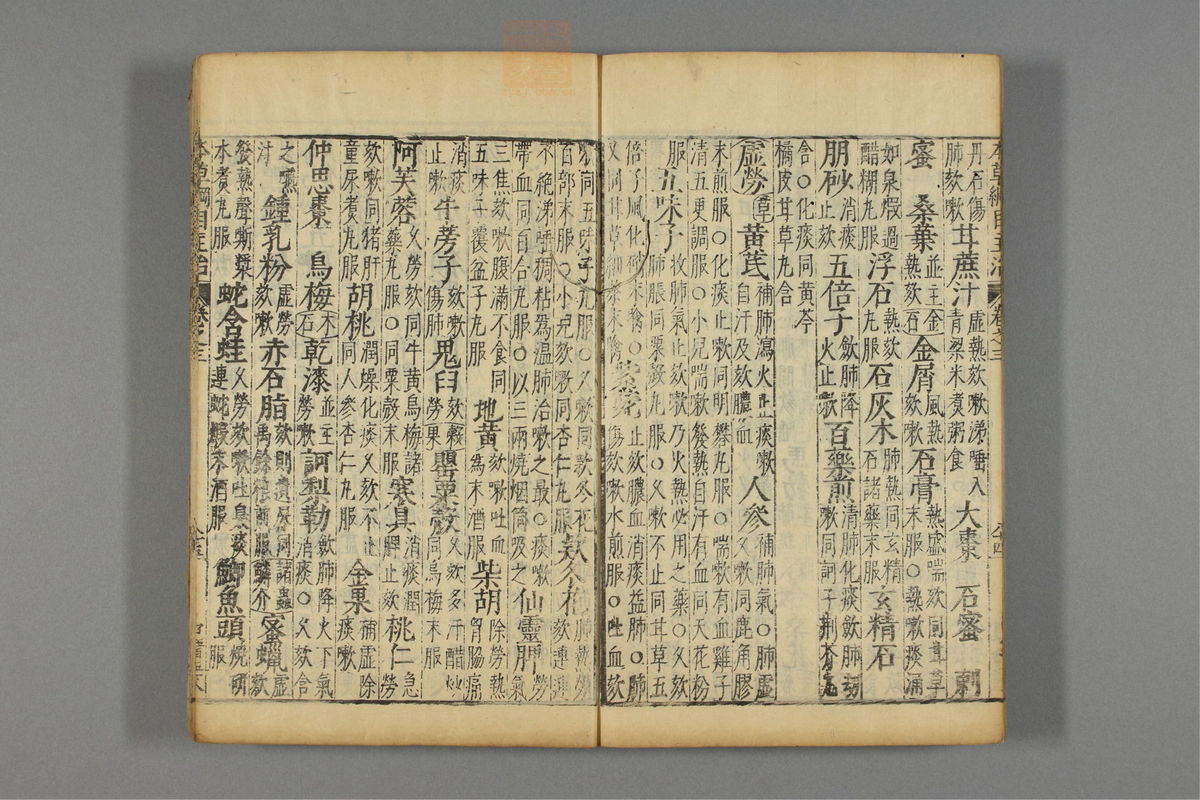 丹石傷肺欬嗽甘蔗汁虛熱欬嗽涕唾入青粱米煮粥食○大棗 石蜜 刺
蜜 桑葉並主熱欬金石金屑風熱欬嗽石膏熱盛喘欬同甘草末服○熱嗽痰涌
如泉煅過醋糊丸服浮石熱欬丸服石灰木肺熱同玄精石諸藥末服玄精石
朋砂消痰止欬五倍子斂肺降火止嗽百藥煎清肺化痰斂肺劫嗽同訶子荊芥丸
含○化痰同黃芩橘皮甘草丸含
虛勞草黃芪補肺瀉火止痰嗽自汗及欬膿血人參補肺氣○肺虛久嗽同鹿角膠
末煎服○化痰止嗽同明礬丸服○喘嗽有血雞子清五更調服○小兒喘嗽發熱自汗有血同天花粉
服五味子收肺氣止欬嗽乃火熱必用之藥○久欬肺脹同粟殼丸服○久嗽不止同甘草五
倍子風化硝末噙○又同甘草細藥末噙紫菀止欬膿血消痰益肺○肺傷欬嗽水煎服○吐血欬
嗽同五味子丸服○久嗽同款冬花百部末服○小兒欬嗽同杏仁丸服款冬花肺熱勞欬連連
不絕涕唾稠粘為溫肺治嗽之最○痰嗽帶血同百合丸服○以三兩燒烟筒吸之仙靈脾勞氣
三焦欬嗽腹滿不食同五味子覆盆子丸服地黃欬嗽吐血為末酒服柴胡除勞熱胃脇痛
消痰止嗽牛蒡子欬嗽傷肺鬼臼欬嗽勞果罌粟殼久欬多汗醋炒同烏梅末服
阿芙蓉久勞欬同牛黃烏梅諸藥丸服○同粟殼末服寒具消痰潤脾止欬桃仁急勞
欬嗽同猪肝童尿煮丸服胡桃潤燥化痰久欬不止同人參杏仁丸服金果補虛除痰嗽
仲思棗 烏梅木石乾漆並主勞嗽訶梨勒斂肺降火下氣消痰○久欬含
之嚥汁鍾乳粉虛勞欬嗽赤石脂欬則遺屎同禹餘糧煎服諸蟲鱗介蜜蠟虛欬
發熱聲嘶漿水煮丸服蛇含蛙久勞欬嗽吐臭痰連蛇煅末酒服鯽魚頭燒研服
本草綱目主治 卷之三